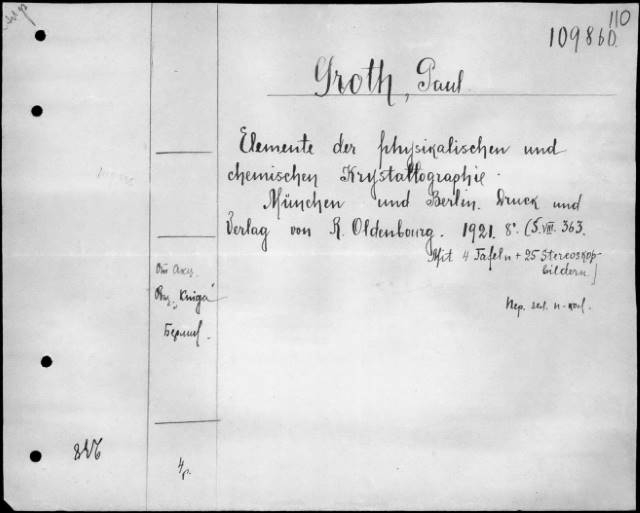 110
10986D.
Groth, Paul
Elemente der physikalischen und
chemischen Krystallographie.
München und Berlin. Druck und
Verlag von R. Oldenbourg. 1921. 8°. (S. VIII. 363.
Mit 4 Tafeln + 25 Stereoskop-
bildern.]
От Акц.
"Книга"
Берлин.
4 р.